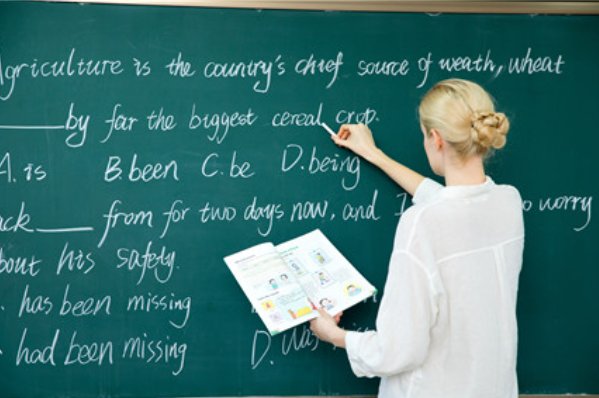 griculture is the country's chief source of weath, wheat
_____by far the biggest cereal crop.
A. is B. been C. be D. being
ack____ from for two days now, and I o worry
bout his safety.
. has been missing
. had been missing D. was